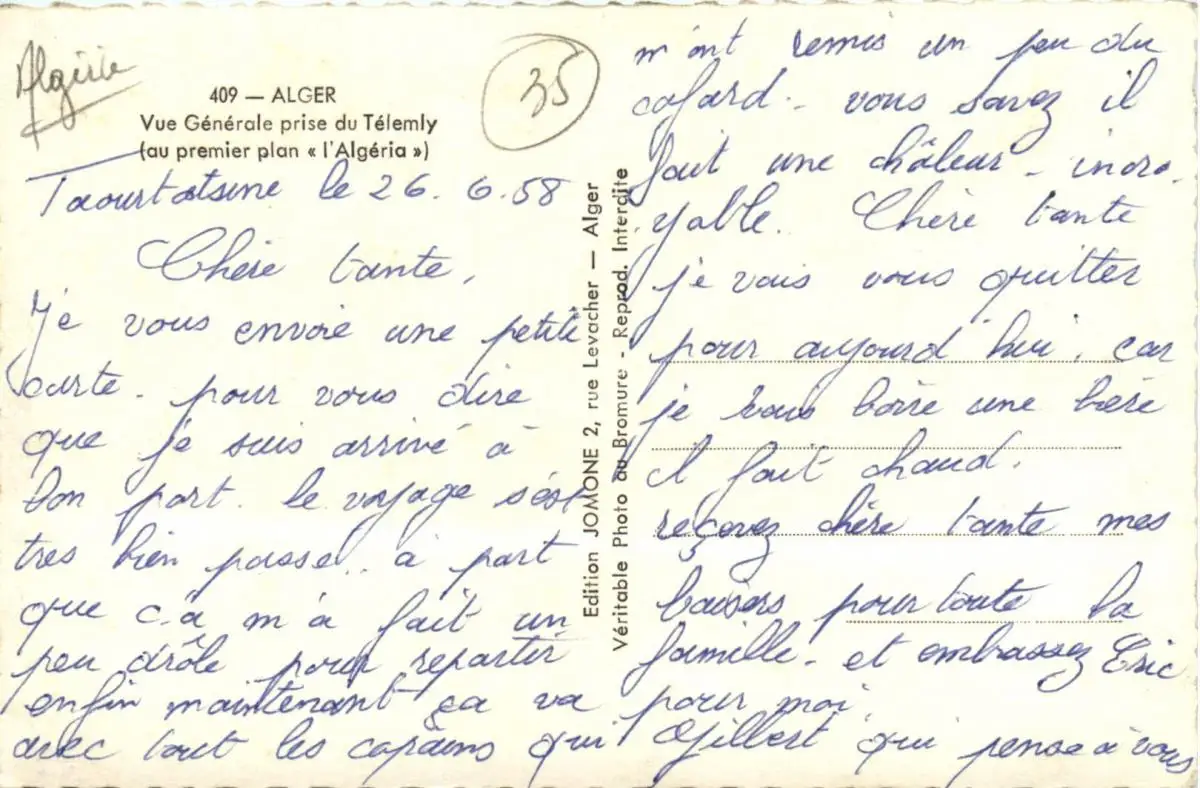 Algérie
35
409 — ALGER
Vue Générale prise du Télemly
(au premier plan « l'Algéria »)
Taourtatsine le 26.6.58
Chère tante,
Je vous envoie une petite
carte. pour vous dire
que je suis arrivé à
bon port. le voyage s'est
tres bien passe. à part
que c.a m'a fait un
peu drôle pour repartir
enfin maintenant ça va
avec tout les copains qui
Edition JOMONE 2, rue Levacher — Alger
Véritable Photo au Bromure - Reprod. Interdite
m'ont remis un peu du
cafard. vous savez il
fait une châleur - incro-
yable. Chère tante
je vais vous quitter
pour aujourd'hui, car
je vais boire une bière
il fait chaud.
reçevez chère tante mes
baisers pour toute la
famille. et embassez Eric
pour moi.
Gilbert qui pense à vous